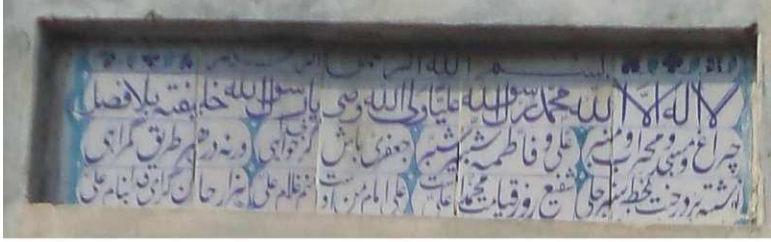 بسم الله الرحمن الرحيم
لا اله الا الله محمد رسول الله علی ولی الله وصی رسول الله خلیفته بلا فصل
چراغ و مسجد و محراب و منبر علی و فاطمہ شبیر شبر جعفری باش گر خواهی ورنہ در هر طریق گمراهی
نوشتہ بر درخت بخط سبز جلی شفیع روز قیامت محمد است علی علی امام من است و منم غلام علی هزار جان گرامی فدا بنام علی